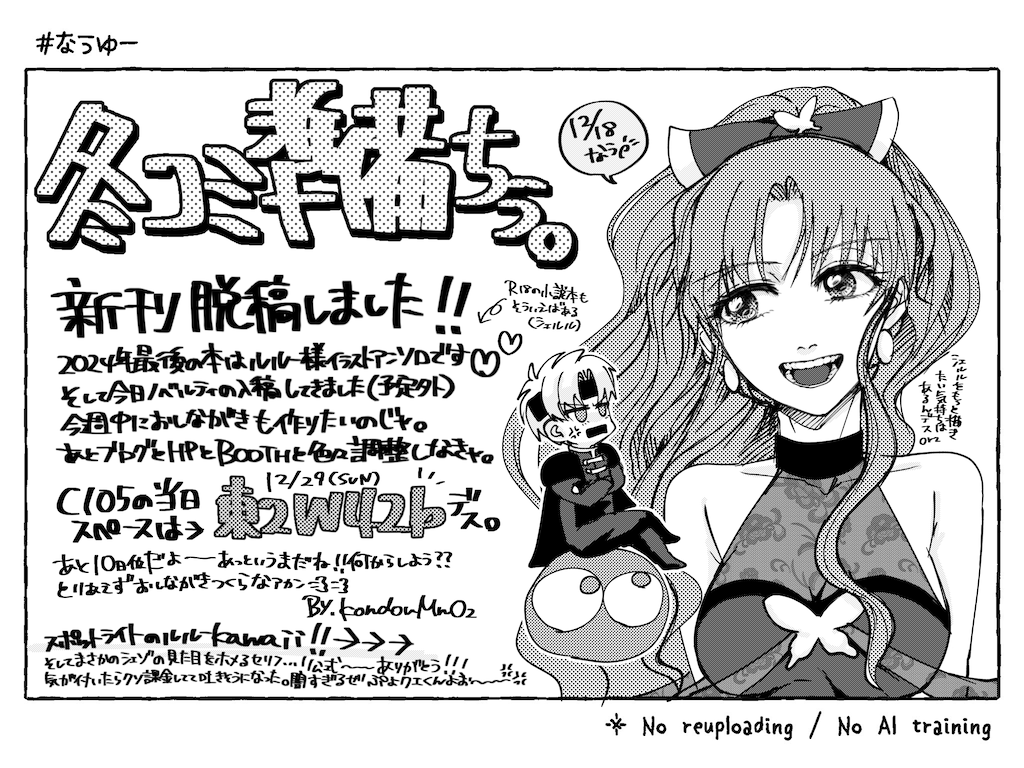 #なうゆー
冬コミ準備ちう。
12/18
なうρ゛
新刊脱稿しました!!
R18の小説本も
そういえばある
(シェルル)
2024年最後の本はルルー様イラストアンソロです
そして今日ノベルティの入稿してきました(予定外)
今週中におしながきも作りたいのじゃ。
あとブログとHPとBOOTHと色々調整しなきゃ。
12/29(SUN)
C105の当日
スペースは→東2W42bデス。
あと10日位だよ〜〜あっというまだね!!何からしよう??
とりあえずおしながきつくらなアカン=3=3
BY.kondouMnO2
シェルルをもっと描き
たい気持ちは
あるんデス
orz
スポットライトのルルーkawaii!!→→→
そしてまさかのシェゾの見た目をホメるセリフ…!!公式〜〜ありがとう!!!
気が付いたらクソ課金してて吐きそうになった。闇すぎるぜ!!
※ No reuploading / No AI training